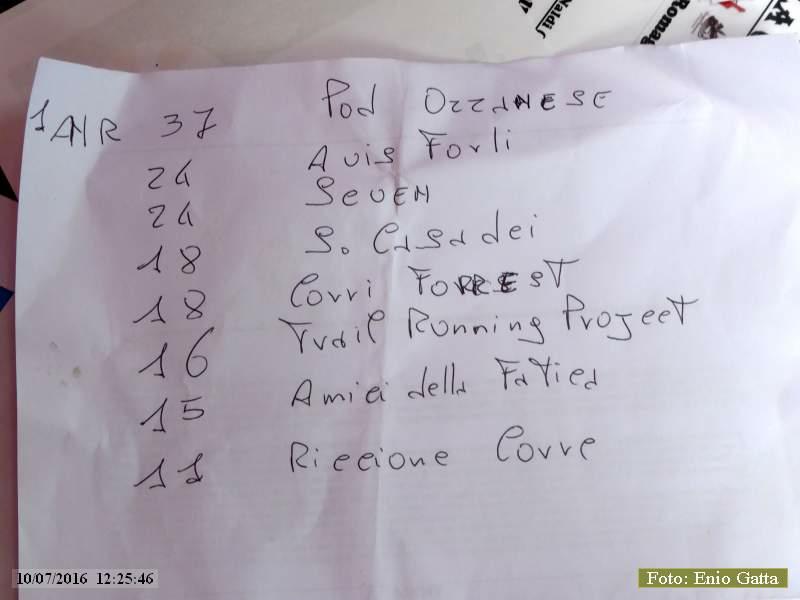 Naldi
Romag
1 AVR 37 Pod OZZANESE
24 AVIS Forlì
24 SEVEN
18 S. CASADEI
18 Corri FORREST
16 Trail Running Project
15 Amici della Fatica
11 Riccione Corre
10/07/2016 12:25:46
Foto: Enio Gatta